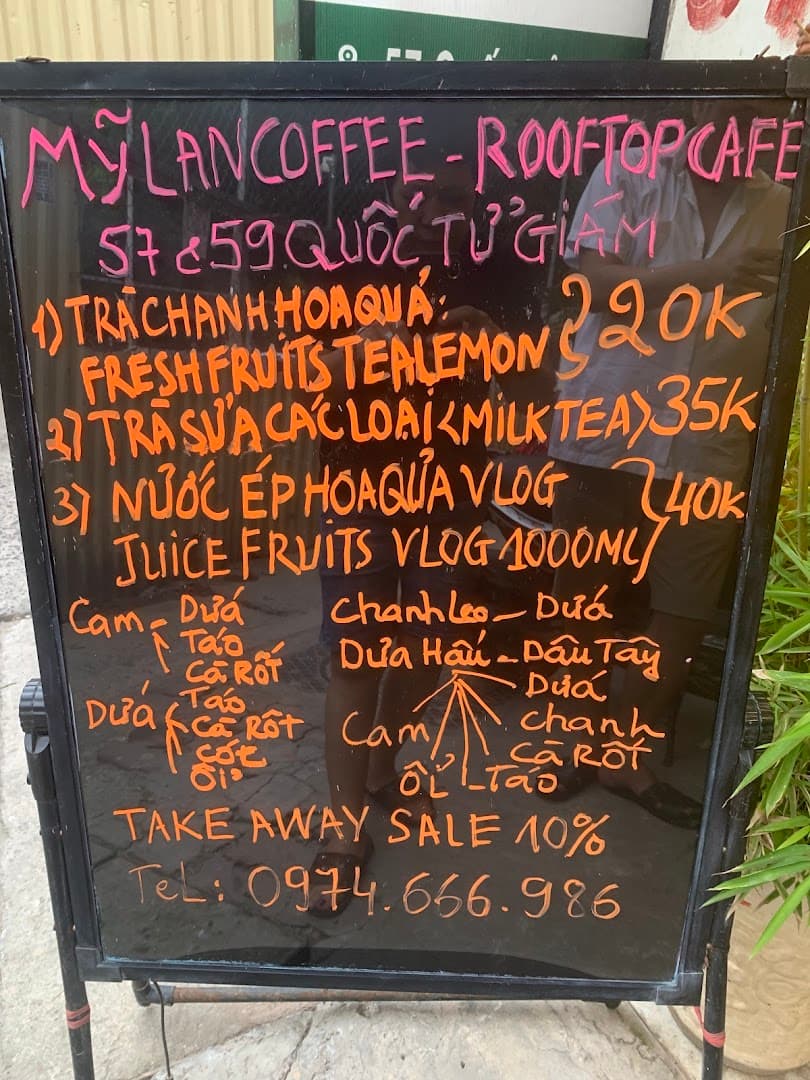 MỸ LAN COFFEE - ROOFTOP CAFE
57 & 59 QUỐC TỬ GIÁM
1) TRÀ CHANH HOA QUẢ:
FRESH FRUITS TEA LEMON } 20K
2) TRÀ SỮA CÁC LOẠI <MILK TEA> 35K
3) NƯỚC ÉP HOA QUẢ VLOG
JUICE FRUITS VLOG 1000ML } 40K
Cam - Dứá
Táo
Cà Rốt
Dứá Táo
Cà Rốt
Cốt
Ổi
Chanh Leo - Dứá
Dưa Hấu - Dâu Tây
Dứá
Chanh
Cà Rốt
Táo
Ổi
Cam
TAKE AWAY SALE 10%
TeL: 0974.666.986